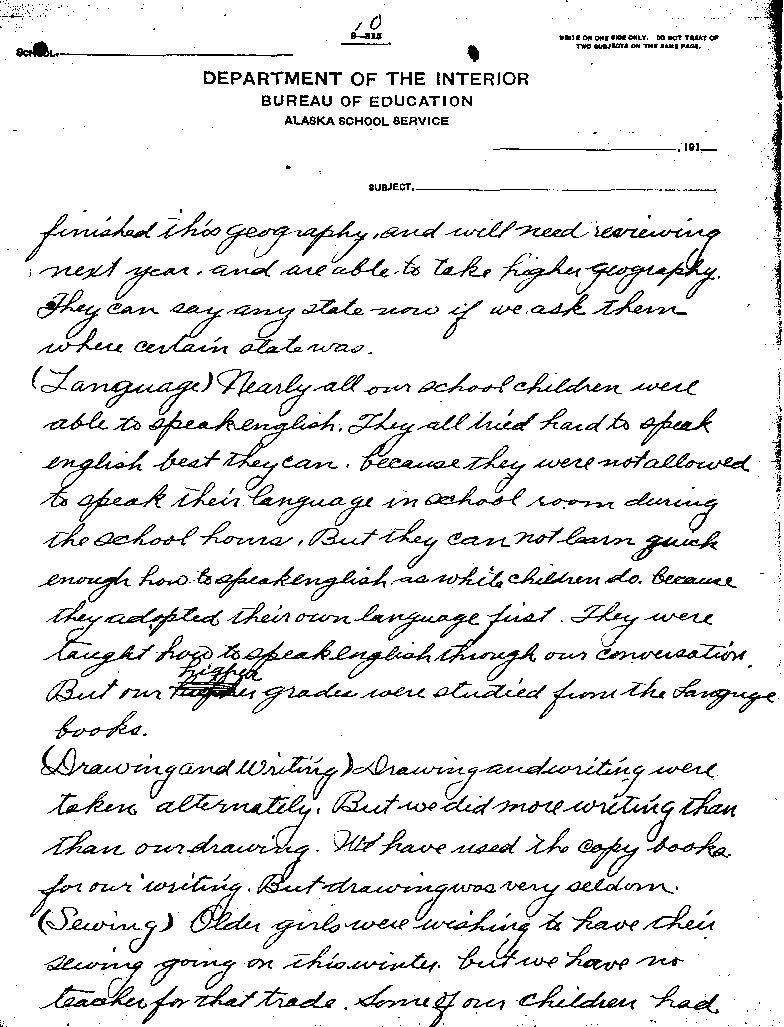 10
9—315
SCHOOL.
WRITE ON ONE SIDE ONLY. DO NOT TREAT OF
TWO SUBJECTS ON THE SAME PAGE.
DEPARTMENT OF THE INTERIOR
BUREAU OF EDUCATION
ALASKA SCHOOL SERVICE
, 191
SUBJECT.
finished this geography, and will need reviewing
next year. and are able to take higher geography.
They can say any state now if we ask them
where certain state was.
(Language) Nearly all our school children were
able to speak english. They all tried hard to speak
english best they can. because they were not allowed
to speak their language in school room during
the school hours. But they can not learn quick
enough how to speak english as white children do. because
they adopted their own language first. They were
taught how to speak english through our conversation.
higher
But our grades were studied from the Languge
books.
(Drawing and Writing) Drawing and writing were
taken alternately. But we did more writing than
than our drawing. We have used the copy books
for our writing. But drawing was very seldom.
(Sewing) Older girls were wishing to have their
sewing going on this winter. but we have no
teacher for that trade. Some of our children had